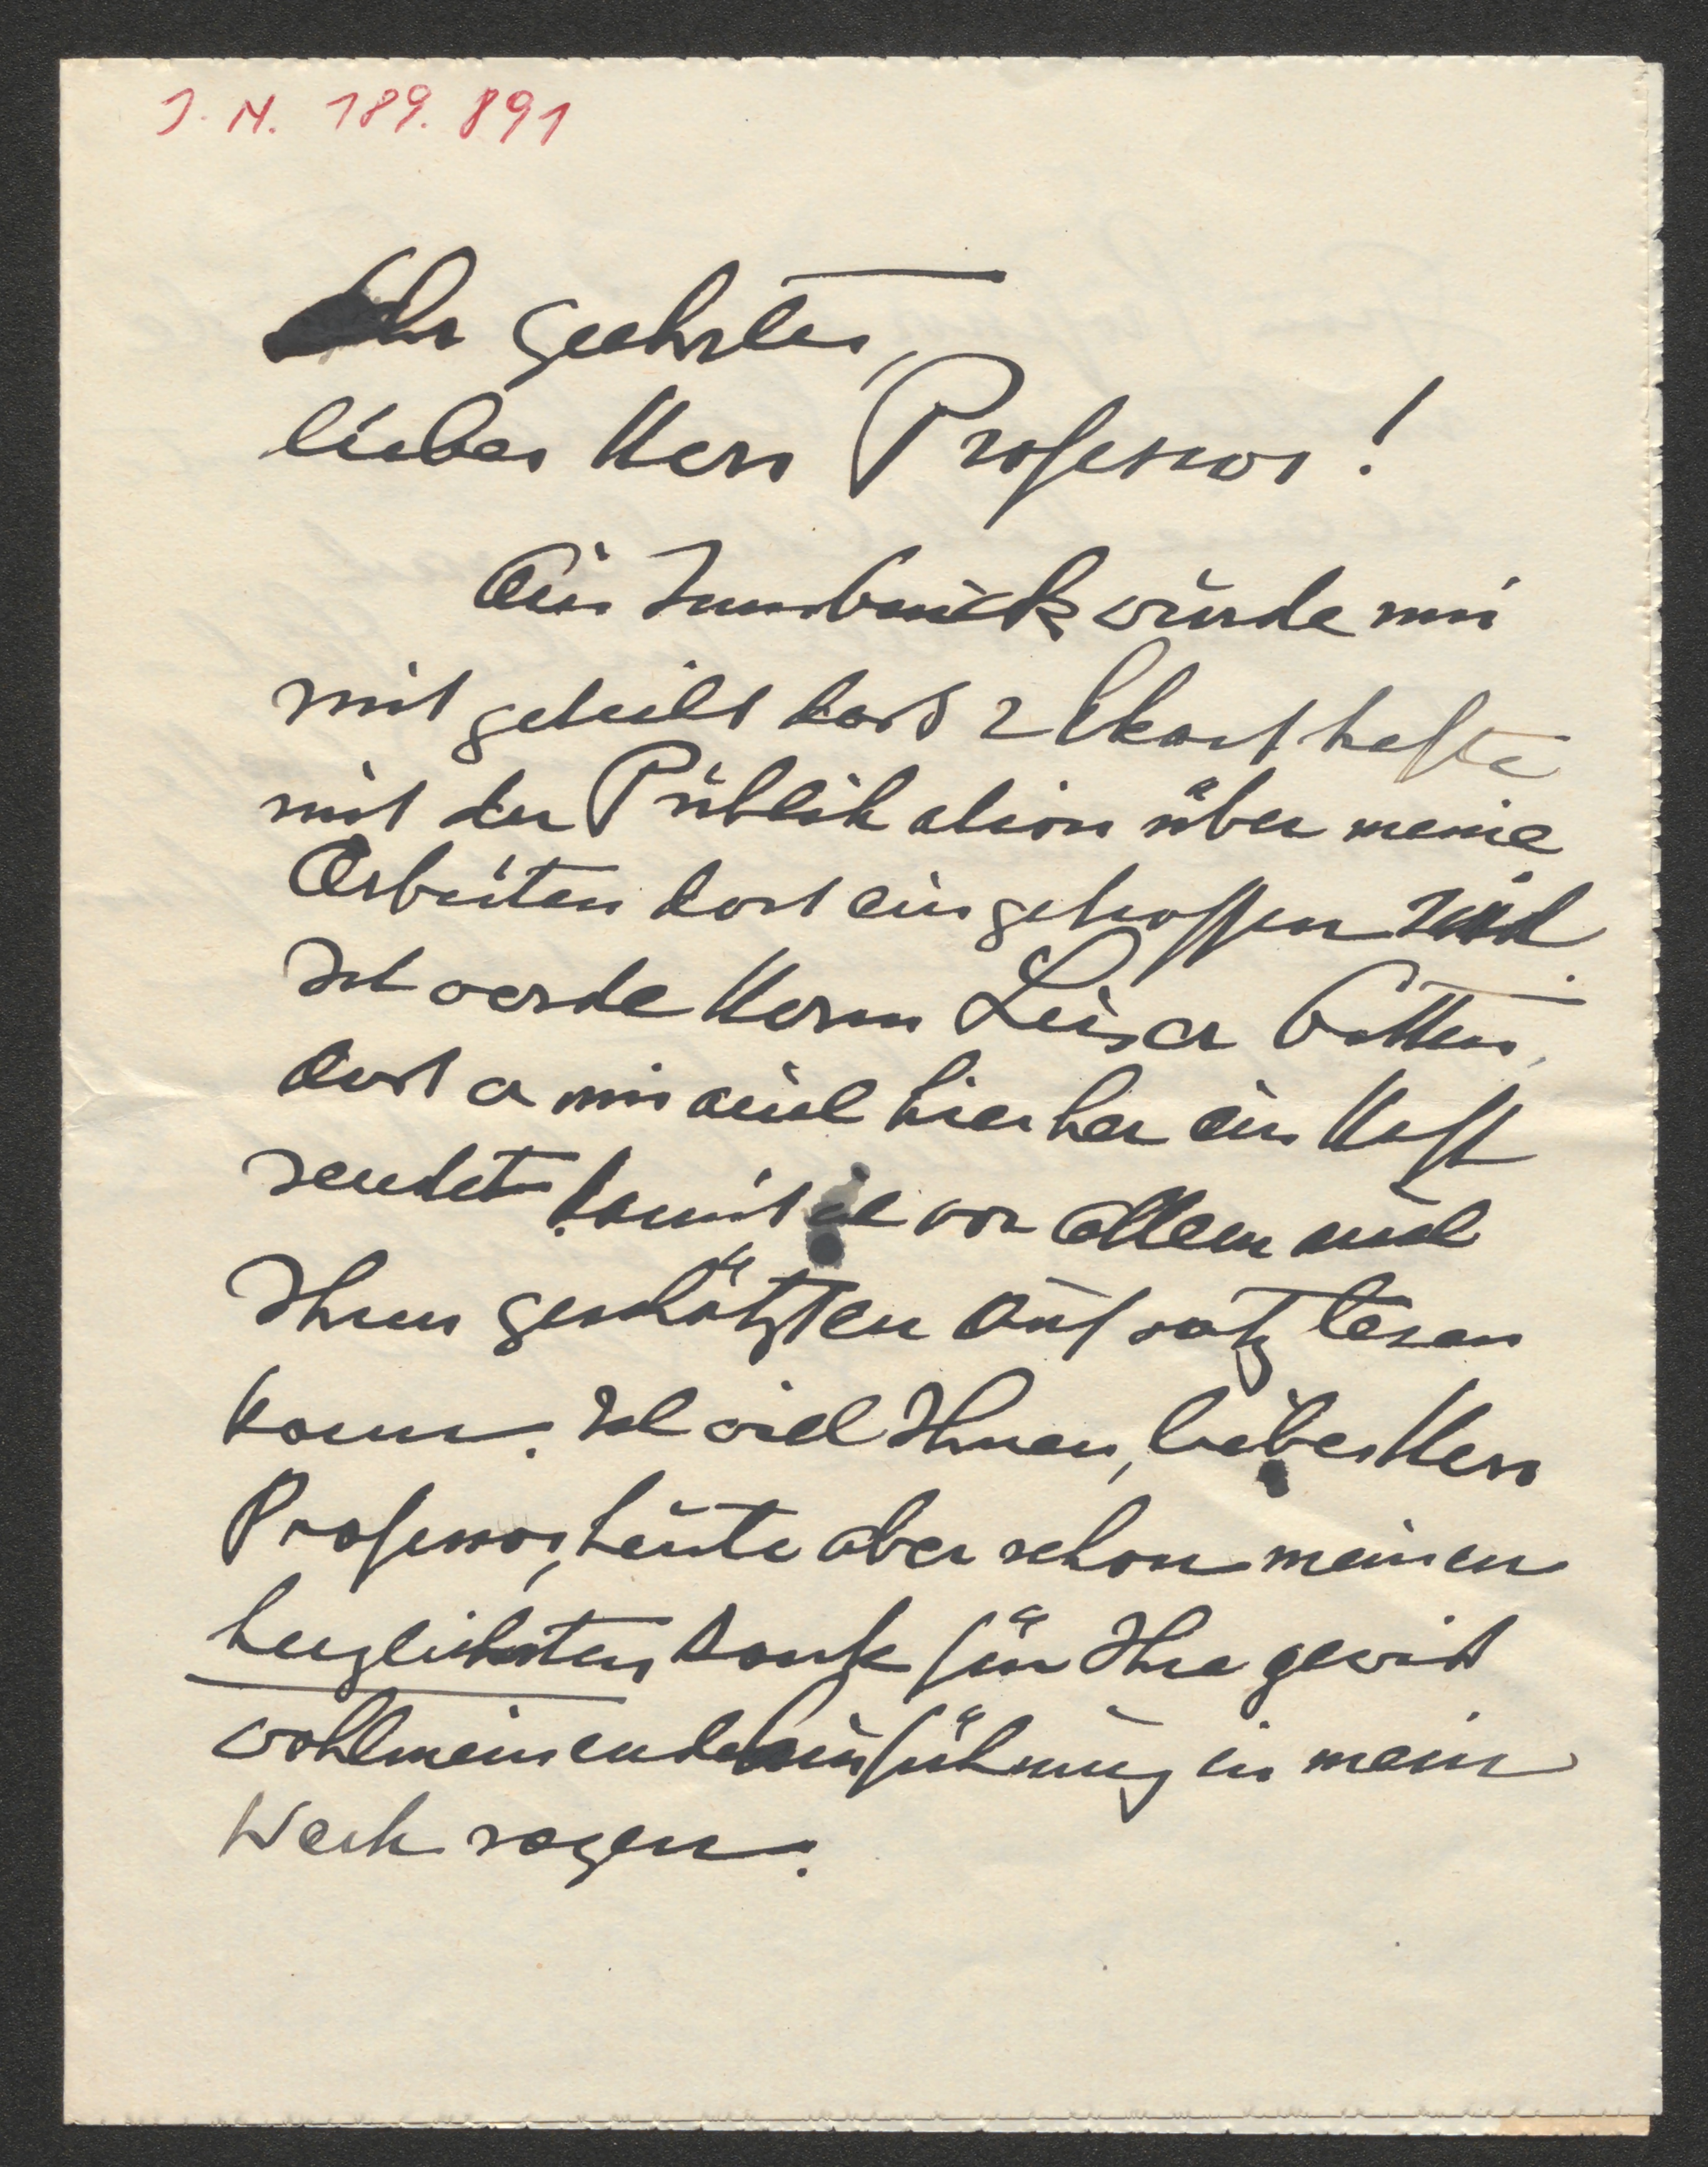 J. N. 189.891
Sehr geehrter,
lieber Herr Professor!
Aus Innsbruck wurde mir
mitgeteilt dass 2 Ekart hefte
mit der Publikation über meine
Arbeiten dort eingetroffen sind.
Ich werde Herrn bitten,
dass er mir auch hierher ein Heft
sendet damit ich vor allem auch
Ihren geschätzten Aufsatz lesen
kann. Ich will Ihnen, lieber Herr
Professor, heute aber schon meinen
herzlichsten Dank für Ihre gewiss
wohlmeinende Einführung in mein
Werk sagen.